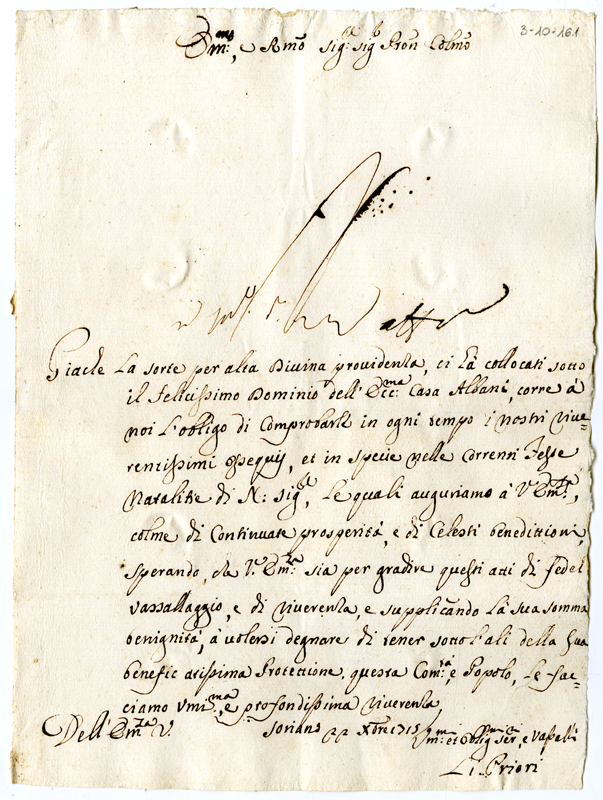 3-10-161
Em:mo, e Rmo Sig:r Sig Pron Colmo
Giache La sorte per alta Divina providenza, ci hà collocati sotto
il felicissimo Dominio dell' Ecc:ma Casa Albani, corre à
noi l'obligo di Comprobarli in ogni tempo i nostri rive=
rentissimi ossequij, et in specie nelle correnti Feste
Natalitie di N: Sig:e, Le quali auguriamo à V. Em:za,
colme di Continuate prosperità, e di Celesti benedittioni,
sperando, che V. Em:za sia per gradire questi atti di fedel
vassallaggio, e di riverenza, e supplicando La sua somma
benignità, à volersi degnare di tener sotto l'ali della sua
beneficatissima Protettione, questa Com:tà, e Popolo, Le fac=
ciamo umi:ma, e profondissima riverenza,
Dell' Em:za V. Soriano 22 Xbre 1715 Um:i et Oblig:mi Ser:i, e Vassalli
Li Priori